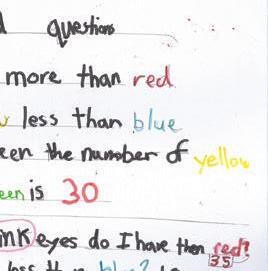 questions
more than red
less than blue
een the number of yellow
een is 30
ink eyes do I have then red?
35
less than blue?